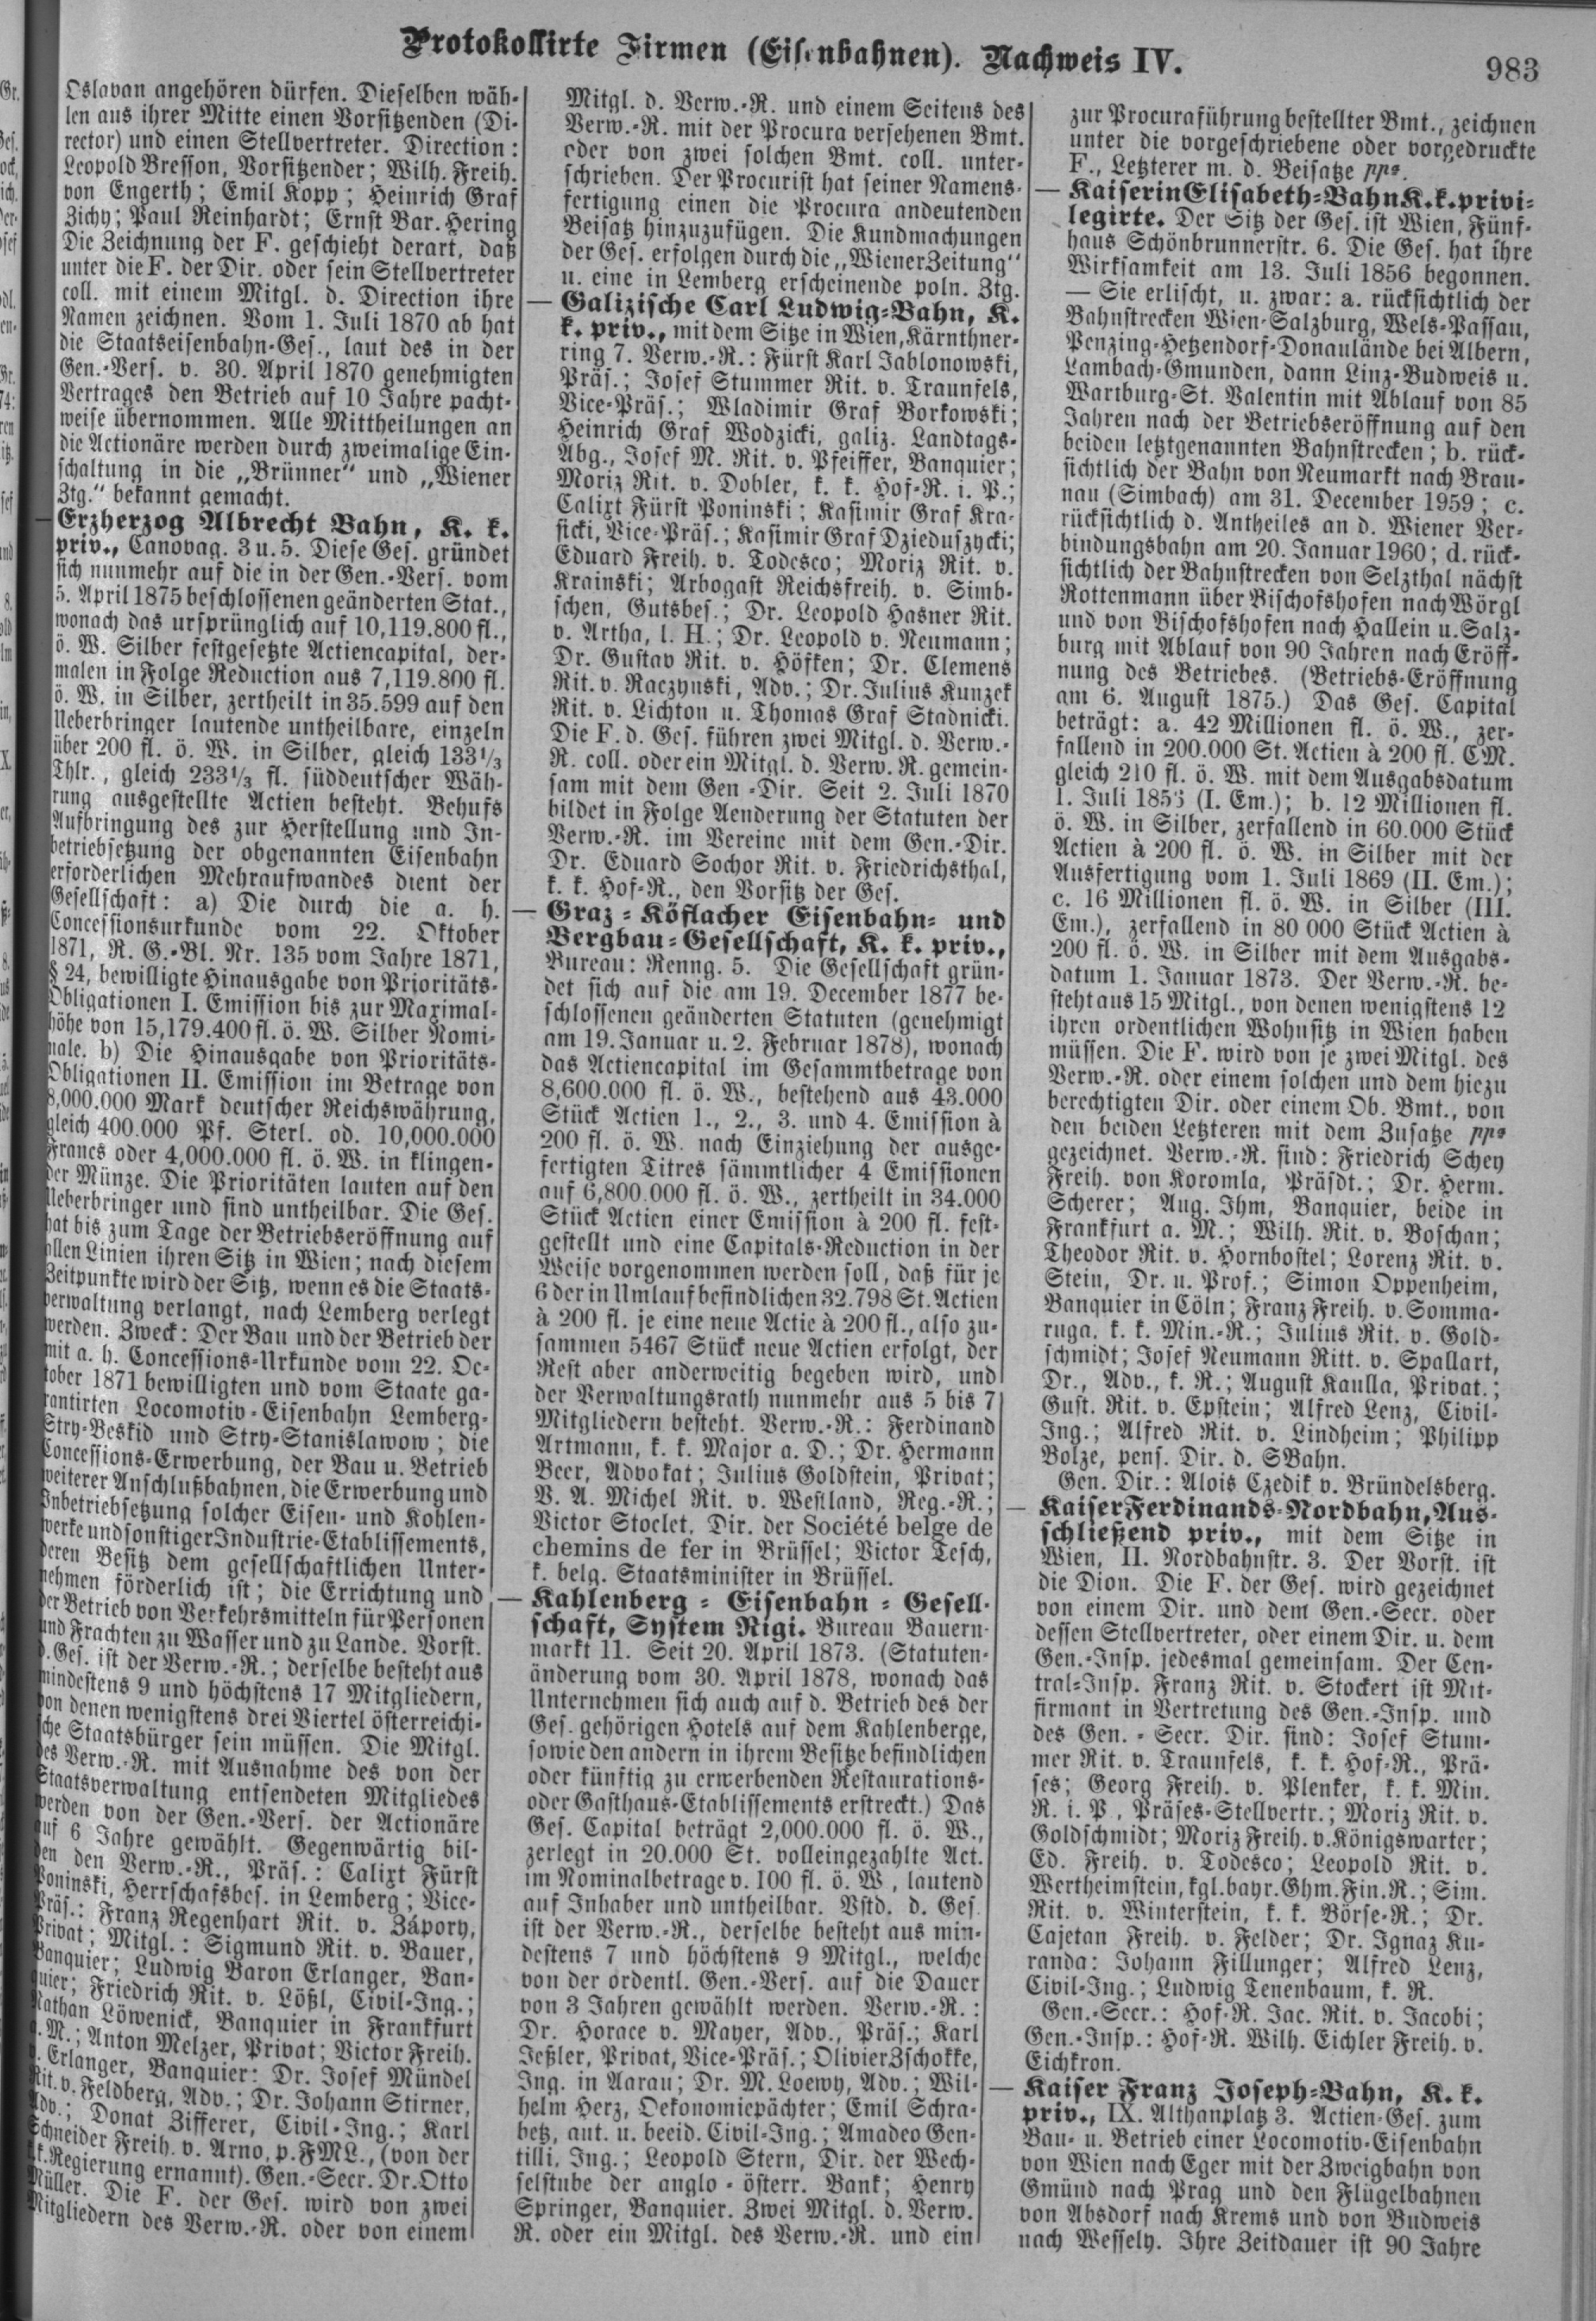 Protokollirte Firmen (Eisenbahnen). Nachweis IV.
983
Oslavan angehören dürfen. Dieselben wäh-
len aus ihrer Mitte einen Vorsitzenden (Di-
rector) und einen Stellvertreter. Direction:
Leopold Bresson, Vorsitzender; Wilh. Freih.
von Engerth; Emil Kopp; Heinrich Graf
Zichy; Paul Reinhardt; Ernst Bar. Hering
Die Zeichnung der F. geschieht derart, daß
unter die F. der Dir. oder sein Stellvertreter
coll. mit einem Mitgl. d. Direction ihre
Namen zeichnen. Vom 1. Juli 1870 ab hat
die Staatseisenbahn-Ges., laut des in der
Gen.-Vers. v. 30. April 1870 genehmigten
Vertrages den Betrieb auf 10 Jahre pacht-
weise übernommen. Alle Mittheilungen an
die Actionäre werden durch zweimalige Ein-
schaltung in die „Brünner“ und „Wiener
Ztg.“ bekannt gemacht.
— Erzherzog Albrecht Bahn, K. k.
priv., Canovag. 3 u. 5. Diese Ges. gründet
sich nunmehr auf die in der Gen.-Vers. vom
5. April 1875 beschlossenen geänderten Stat.,
wonach das ursprünglich auf 10,119.800 fl.,
ö. W. Silber festgesetzte Actiencapital, der-
malen in Folge Reduction aus 7,119.800 fl.
ö. W. in Silber, zertheilt in 35.599 auf den
Ueberbringer lautende untheilbare, einzeln
über 200 fl. ö. W. in Silber, gleich 133 1/3
Thlr., gleich 233 1/3 fl. süddeutscher Wäh-
rung ausgestellte Actien besteht. Behufs
Aufbringung des zur Herstellung und In-
betriebsetzung der obgenannten Eisenbahn
erforderlichen Mehraufwandes dient der
Gesellschaft: a) Die durch die a. h.
Concessionsurkunde vom 22. Oktober
1871, R. G.-Bl. Nr. 135 vom Jahre 1871,
§ 24, bewilligte Hinausgabe von Prioritäts-
Obligationen I. Emission bis zur Maximal-
höhe von 15,179.400 fl. ö. W. Silber Nomi-
nale. b) Die Hinausgabe von Prioritäts-
Obligationen II. Emission im Betrage von
8,000.000 Mark deutscher Reichswährung,
gleich 400.000 Pf. Sterl. od. 10,000.000
Francs oder 4,000.000 fl. ö. W. in klingen-
der Münze. Die Prioritäten lauten auf den
Ueberbringer und sind untheilbar. Die Ges.
hat bis zum Tage der Betriebseröffnung auf
allen Linien ihren Sitz in Wien; nach diesem
Zeitpunkte wird der Sitz, wenn es die Staats-
verwaltung verlangt, nach Lemberg verlegt
werden. Zweck: Der Bau und der Betrieb der
mit a. h. Concessions-Urkunde vom 22. Oc-
tober 1871 bewilligten und vom Staate ga-
rantirten Locomotiv-Eisenbahn Lemberg-
Stry-Beskid und Stry-Stanislawow; die
Concessions-Erwerbung, der Bau u. Betrieb
weiterer Anschlußbahnen, die Erwerbung und
Inbetriebsetzung solcher Eisen- und Kohlen-
werke und sonstiger Industrie-Etablissements,
deren Besitz dem gesellschaftlichen Unter-
nehmen förderlich ist; die Errichtung und
der Betrieb von Verkehrsmitteln für Personen
und Frachten zu Wasser und zu Lande. Vorst.
d. Ges. ist der Verw.-R.; derselbe besteht aus
mindestens 9 und höchstens 17 Mitgliedern,
von denen wenigstens drei Viertel österreichi-
sche Staatsbürger sein müssen. Die Mitgl.
des Verw.-R. mit Ausnahme des von der
Staatsverwaltung entsendeten Mitgliedes
werden von der Gen.-Vers. der Actionäre
auf 6 Jahre gewählt. Gegenwärtig bil-
den den Verw.-R., Präs.: Calixt Fürst
Poninski, Herrschafsbes. in Lemberg; Vice-
Präs.: Franz Regenhart Rit. v. Zápory,
Privat; Mitgl.: Sigmund Rit. v. Bauer,
Banquier; Ludwig Baron Erlanger, Ban-
quier; Friedrich Rit. v. Lößl, Civil-Ing.;
Nathan Löwenick, Banquier in Frankfurt
a. M.; Anton Melzer, Privat; Victor Freih.
v. Erlanger, Banquier: Dr. Josef Mündel
Rit. v. Feldberg, Adv.; Dr. Johann Stirner,
Adv.; Donat Zifferer, Civil-Ing.; Karl
Schneider Freih. v. Arno, p. FML., (von der
k.k. Regierung ernannt). Gen.-Secr. Dr. Otto
Müller. Die F. der Ges. wird von zwei
Mitgliedern des Verw.-R. oder von einem
Mitgl. d. Verw.-R. und einem Seitens des
Verw.-R. mit der Procura versehenen Bmt.
oder von zwei solchen Bmt. coll. unter-
schrieben. Der Procurist hat seiner Namens-
fertigung einen die Procura andeutenden
Beisatz hinzuzufügen. Die Kundmachungen
der Ges. erfolgen durch die „Wiener Zeitung“
u. eine in Lemberg erscheinende poln. Ztg.
— Galizische Carl Ludwig-Bahn, K.
k. priv., mit dem Sitze in Wien, Kärnthner-
ring 7. Verw.-R.: Fürst Karl Jablonowski,
Präs.; Josef Stummer Rit. v. Traunfels,
Vice-Präs.; Wladimir Graf Borkowski;
Heinrich Graf Wodzicki, galiz. Landtags-
Abg., Josef M. Rit. v. Pfeiffer, Banquier;
Moriz Rit. v. Dobler, k. k. Hof-R. i. P.;
Calixt Fürst Poninski; Kasimir Graf Kra-
sicki, Vice-Präs.; Kasimir Graf Dzieduszycki;
Eduard Freih. v. Todesco; Moriz Rit. v.
Krainski; Arbogast Reichsfreih. v. Simb-
schen, Gutsbes.; Dr. Leopold Hasner Rit.
v. Artha, l. H.; Dr. Leopold v. Neumann;
Dr. Gustav Rit. v. Höfken; Dr. Clemens
Rit. v. Raczynski, Adv.; Dr. Julius Kunzek
Rit. v. Lichton u. Thomas Graf Stadnicki.
Die F. d. Ges. führen zwei Mitgl. d. Verw.-
R. coll. oder ein Mitgl. d. Verw. R. gemein-
sam mit dem Gen-Dir. Seit 2. Juli 1870
bildet in Folge Aenderung der Statuten der
Verw.-R. im Vereine mit dem Gen.-Dir.
Dr. Eduard Sochor Rit. v. Friedrichsthal,
k. k. Hof-R., den Vorsitz der Ges.
— Graz-Köflacher Eisenbahn- und
Bergbau-Gesellschaft, K. k. priv.,
Bureau: Renng. 5. Die Gesellschaft grün-
det sich auf die am 19. December 1877 be-
schlossenen geänderten Statuten (genehmigt
am 19. Januar u. 2. Februar 1878), wonach
das Actiencapital im Gesammtbetrage von
8,600.000 fl. ö. W., bestehend aus 43.000
Stück Actien 1., 2., 3. und 4. Emission à
200 fl. ö. W. nach Einziehung der ausge-
fertigten Titres sämmtlicher 4 Emissionen
auf 6,800.000 fl. ö. W., zertheilt in 34.000
Stück Actien einer Emission à 200 fl. fest-
gestellt und eine Capitals-Reduction in der
Weise vorgenommen werden soll, daß für je
6 der in Umlauf befindlichen 32.798 St. Actien
à 200 fl. je eine neue Actie à 200 fl., also zu-
sammen 5467 Stück neue Actien erfolgt, der
Rest aber anderweitig begeben wird, und
der Verwaltungsrath nunmehr aus 5 bis 7
Mitgliedern besteht. Verw.-R.: Ferdinand
Artmann, k. k. Major a. D.; Dr. Hermann
Beer, Advokat; Julius Goldstein, Privat;
V. A. Michel Rit. v. Westland, Reg.-R.;
Victor Stoclet, Dir. der Société belge de
chemins de fer in Brüssel; Victor Tesch,
k. belg. Staatsminister in Brüssel.
— Kahlenberg-Eisenbahn-Gesell-
schaft, System Rigi. Bureau Bauern-
markt 11. Seit 20. April 1873. (Statuten-
änderung vom 30. April 1878, wonach das
Unternehmen sich auch auf d. Betrieb des der
Ges. gehörigen Hotels auf dem Kahlenberge,
sowie den andern in ihrem Besitze befindlichen
oder künftig zu erwerbenden Restaurations-
oder Gasthaus-Etablissements erstreckt.) Das
Ges. Capital beträgt 2,000.000 fl. ö. W.,
zerlegt in 20.000 St. volleingezahlte Act.
im Nominalbetrage v. 100 fl. ö. W., lautend
auf Inhaber und untheilbar. Vstd. d. Ges.
ist der Verw.-R., derselbe besteht aus min-
destens 7 und höchstens 9 Mitgl., welche
von der ordentl. Gen.-Vers. auf die Dauer
von 3 Jahren gewählt werden. Verw.-R.:
Dr. Horace v. Mayer, Adv., Präs.; Karl
Jeßler, Privat, Vice-Präs.; Olivier Zschokke,
Ing. in Aarau; Dr. M. Loewy, Adv.; Wil-
helm Herz, Oekonomiepächter; Emil Schra-
betz, aut. u. beeid. Civil-Ing.; Amadeo Gen-
tilli, Ing.; Leopold Stern, Dir. der Wech-
selstube der anglo-österr. Bank; Henry
Springer, Banquier. Zwei Mitgl. d. Verw.
R. oder ein Mitgl. des Verw.-R. und ein
zur Procuraführung bestellter Bmt., zeichnen
unter die vorgeschriebene oder vorgedruckte
F., Letzterer m. d. Beisatze ppa.
— Kaiserin Elisabeth-Bahn K. k. privi-
legirte. Der Sitz der Ges. ist Wien, Fünf-
haus Schönbrunnerstr. 6. Die Ges. hat ihre
Wirksamkeit am 13. Juli 1856 begonnen.
— Sie erlischt, u. zwar: a. rücksichtlich der
Bahnstrecken Wien-Salzburg, Wels-Passau,
Penzing-Hetzendorf-Donaulände bei Albern,
Lambach-Gmunden, dann Linz-Budweis u.
Wartburg-St. Valentin mit Ablauf von 85
Jahren nach der Betriebseröffnung auf den
beiden letztgenannten Bahnstrecken; b. rück-
sichtlich der Bahn von Neumarkt nach Brau-
nau (Simbach) am 31. December 1959; c.
rücksichtlich d. Antheiles an d. Wiener Ver-
bindungsbahn am 20. Januar 1960; d. rück-
sichtlich der Bahnstrecken von Selzthal nächst
Rottenmann über Bischofshofen nach Wörgl
und von Bischofshofen nach Hallein u. Salz-
burg mit Ablauf von 90 Jahren nach Eröff-
nung des Betriebes. (Betriebs-Eröffnung
am 6. August 1875.) Das Ges. Capital
beträgt: a. 42 Millionen fl. ö. W., zer-
fallend in 200.000 St. Actien à 200 fl. CM.
gleich 210 fl. ö. W. mit dem Ausgabsdatum
1. Juli 1856 (I. Em.); b. 12 Millionen fl.
ö. W. in Silber, zerfallend in 60.000 Stück
Actien à 200 fl. ö. W. in Silber mit der
Ausfertigung vom 1. Juli 1869 (II. Em.);
c. 16 Millionen fl. ö. W. in Silber (III.
Em.), zerfallend in 80 000 Stück Actien à
200 fl. ö. W. in Silber mit dem Ausgabs-
datum 1. Januar 1873. Der Verw.-R. be-
steht aus 15 Mitgl., von denen wenigstens 12
ihren ordentlichen Wohnsitz in Wien haben
müssen. Die F. wird von je zwei Mitgl. des
Verw.-R. oder einem solchen und dem hiezu
berechtigten Dir. oder einem Ob. Bmt., von
den beiden Letzteren mit dem Zusatze ppa
gezeichnet. Verw.-R. sind: Friedrich Schey
Freih. von Koromla, Präsdt.; Dr. Herm.
Scherer; Aug. Ihm, Banquier, beide in
Frankfurt a. M.; Wilh. Rit. v. Boschan;
Theodor Rit. v. Hornbostel; Lorenz Rit. v.
Stein, Dr. u. Prof.; Simon Oppenheim,
Banquier in Cöln; Franz Freih. v. Somma-
ruga, k. k. Min.-R.; Julius Rit. v. Gold-
schmidt; Josef Neumann Ritt. v. Spallart,
Dr., Adv., k. R.; August Kaulla, Privat.;
Gust. Rit. v. Epstein; Alfred Lenz, Civil-
Ing.; Alfred Rit. v. Lindheim; Philipp
Bolze, pens. Dir. d. SBahn.
Gen. Dir.: Alois Czedik v. Bründelsberg.
— Kaiser Ferdinands-Nordbahn, Aus-
schließend priv., mit dem Sitze in
Wien, II. Nordbahnstr. 3. Der Vorst. ist
die Dion. Die F. der Ges. wird gezeichnet
von einem Dir. und dem Gen.-Secr. oder
dessen Stellvertreter, oder einem Dir. u. dem
Gen.-Insp. jedesmal gemeinsam. Der Cen-
tral-Insp. Franz Rit. v. Stockert ist Mit-
firmant in Vertretung des Gen.-Insp. und
des Gen.-Secr. Dir. sind: Josef Stum-
mer Rit. v. Traunfels, k. k. Hof-R., Prä-
ses; Georg Freih. v. Plenker, k. k. Min.
R. i. P., Präses-Stellvertr.; Moriz Rit. v.
Goldschmidt; Moriz Freih. v. Königswarter;
Ed. Freih. v. Todesco; Leopold Rit. v.
Wertheimstein, kgl. bayr. Ghm. Fin. R.; Sim.
Rit. v. Winterstein, k. k. Börse-R.; Dr.
Cajetan Freih. v. Felder; Dr. Ignaz Ku-
randa: Johann Fillunger; Alfred Lenz,
Civil-Ing.; Ludwig Tenenbaum, k. R.
Gen.-Secr.: Hof-R. Jac. Rit. v. Jacobi;
Gen.-Insp.: Hof-R. Wilh. Eichler Freih. v.
Eichkron.
— Kaiser Franz Joseph-Bahn, K. k.
priv., IX. Althanplatz 3. Actien-Ges. zum
Bau- u. Betrieb einer Locomotiv-Eisenbahn
von Wien nach Eger mit der Zweigbahn von
Gmünd nach Prag und den Flügelbahnen
von Absdorf nach Krems und von Budweis
nach Wessely. Ihre Zeitdauer ist 90 Jahre